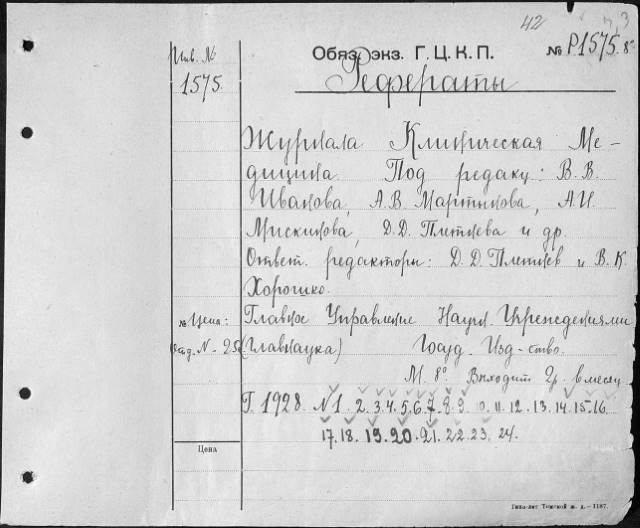 42
Инв. №
1575.
Обяз. экз. Г. Ц. К. П.
№ Р1575.
Рефераты
Журнала Клиническая Ме-
дицина. Под редакц: В. В.
Иванова, А. В. Мартынова, А. И.
Мискинова, Д. Д. Плетнева и др.
Ответ. редакторы: Д. Д. Плетнев и В. К.
Хорошко.
№ Цена:
отд. N - 25к
Главное Управление Научн. Учреждениями
(Главнаука) Госуд. Изд-ство.
М. 8°. Выходит 2р. в месяц
Г. 1928. N 1. 2. 3. 4. 5. 6. 7. 8. 9. 10. 11. 12. 13. 14. 15. 16.
17. 18. 19. 20. 21. 22. 23. 24.
Цена
Типо-лит Томской ж. д.—1187.